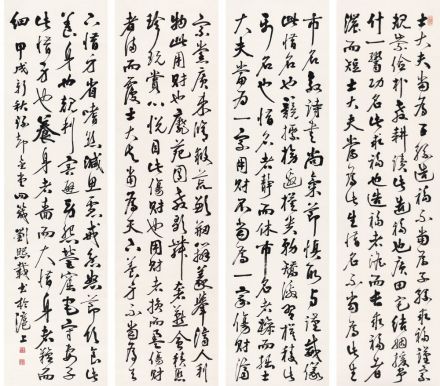 士大夫當為子孫造福不當為子孫求福謹家
規崇儉朴教耕讀積陰德此造福也廣田宅結姻援爭
什一鬻功名此求福也造福者淡而長求福者
濃而短士大夫當為此生惜名不當為此生
市名敦詩書尚氣節慎取與謹威儀
此惜名也競標榜邀權貴務矯激習模棱此
市名也惜名者靜而休市名者躁而拙士
大夫當為一家用財不當為一家傷財
宗黨廣束脩救荒歉助義舉濟人利
物此用財也靡苑囿教歌舞奢燕會聚
珍玩賞心悅目此傷財也用財者損而盈傷財
者滿而覆士大夫當為天下養身不當為天
下惜身省嗜慾減思慮戒忿怒節飲食此
養身也規利害避勞怨營窟宅守妻子
此惜身也養身者嗇而大惜身者膻而
細 甲戌新秋錄 四箴劉熙載書於滬上